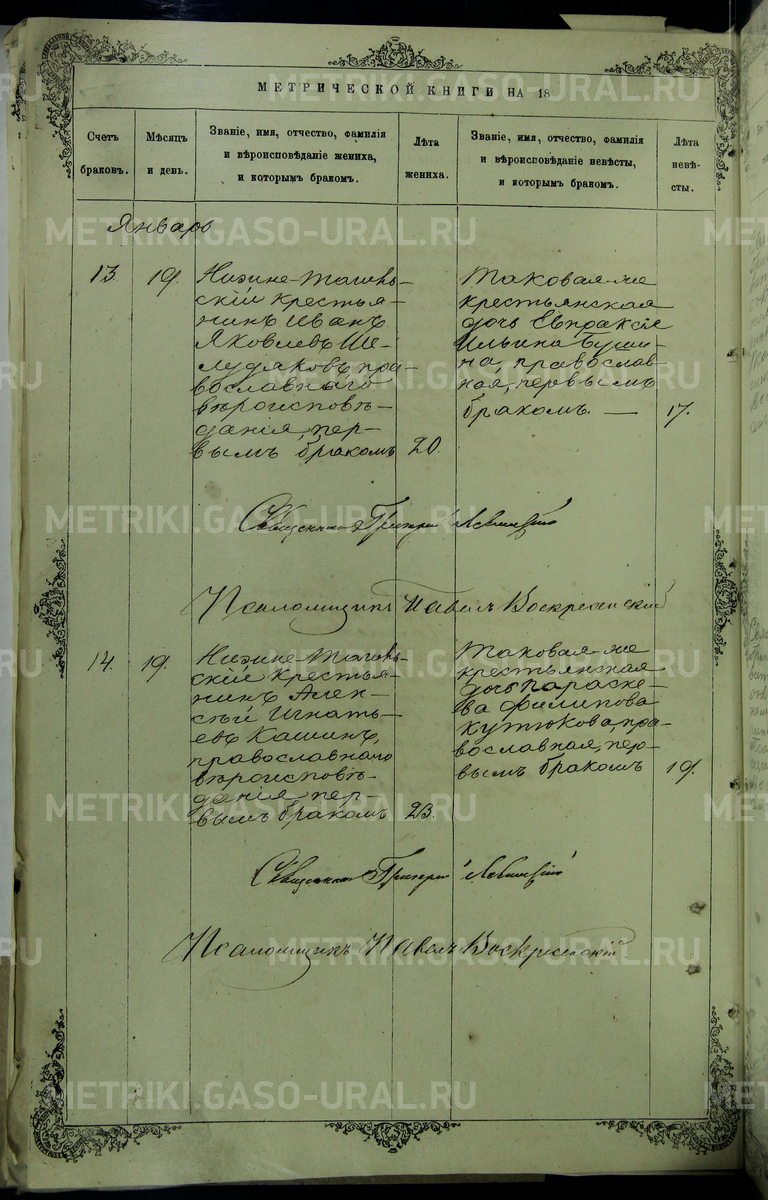 МЕТРИЧЕСКОЙ КНИГИ НА 18
Счетъ
браковъ.
Мѣсяцъ
и день.
Званіе, имя, отчество, фамилія
и вѣроисповѣданіе жениха,
и которымъ бракомъ.
Лѣта
жениха.
Званіе, имя, отчество, фамилія
и вѣроисповѣданіе невѣсты,
и которымъ бракомъ.
Лѣта
невѣ-
сты.
Январь
13. 19.
Нижне-Тагиль-
скій крестья-
нинъ Иванъ
Яковлевъ Ше-
лудяковъ, пра-
вославнаго
вѣроисповѣ-
данія, пер-
вымъ бракомъ 20.
Таковая-же
крестьянская
дочь Евпраксія
Ильина Буши-
на, православ-
ная, первымъ
бракомъ. — 17.
Священникъ Григорій
Псаломщикъ Павелъ Воскресенскій
14. 19.
Нижне-Тагиль-
скій крестья-
нинъ Алек-
сѣй Игнать-
евъ Кашинъ,
православнаго
вѣроисповѣ-
данія, пер-
вымъ бракомъ 23.
Таковая-же
крестьянская
дочь Параске-
ва Филипова
Кутюкова, пра-
вославная, пер-
вымъ бракомъ 19.
Священникъ Григорій
Псаломщикъ Павелъ Воскресенскій
METRIKI.GASO-URAL.RU